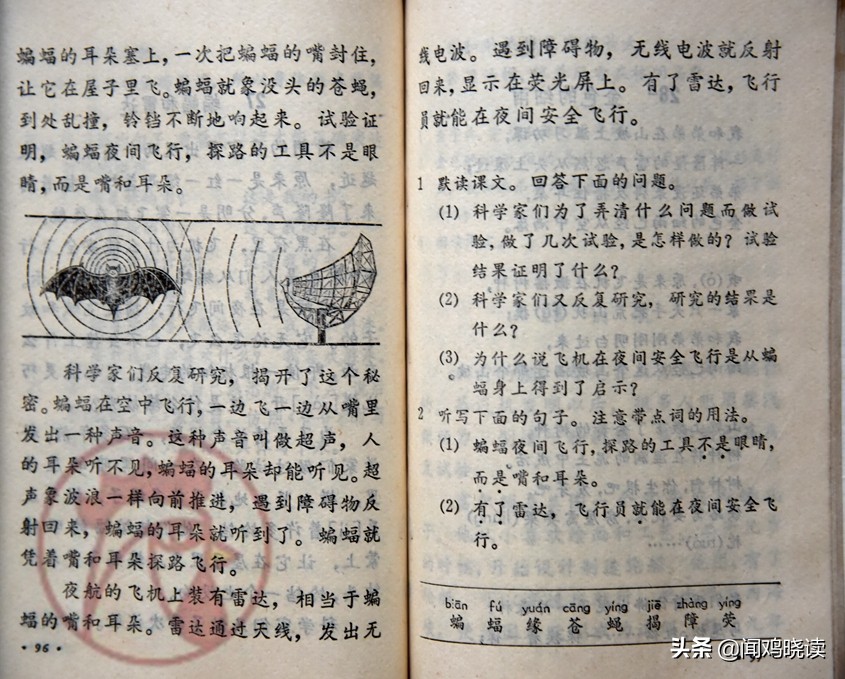 蝙蝠的耳朵塞上,一次把蝙蝠的嘴封住,
让它在屋子里飞。蝙蝠就象没头的苍蝇,
到处乱撞,铃铛不断地响起来。试验证
明,蝙蝠夜间飞行,探路的工具不是眼
睛,而是嘴和耳朵。
科学家们反复研究,揭开了这个秘
密。蝙蝠在空中飞行,一边飞一边从嘴里
发出一种声音。这种声音叫做超声,人
的耳朵听不见,蝙蝠的耳朵却能听见。超
声象波浪一样向前推进,遇到障碍物反
射回来,蝙蝠的耳朵就听到了。蝙蝠就
凭着嘴和耳朵探路飞行。
夜航的飞机上装有雷达,相当于蝙
蝠的嘴和耳朵。雷达通过天线,发出无
·96·
线电波。遇到障碍物,无线电波就反射
回来,显示在荧光屏上。有了雷达,飞行
员就能在夜间安全飞行。
1 默读课文。回答下面的问题。
(1) 科学家们为了弄清什么问题而做试
验,做了几次试验,是怎样做的?试验
结果证明了什么?
(2) 科学家们又反复研究,研究的结果是
什么?
(3) 为什么说飞机在夜间安全飞行是从蝙
蝠身上得到了启示?
2 听写下面的句子。注意带点词的用法。
(1) 蝙蝠夜间飞行,探路的工具不是眼睛,
而是嘴和耳朵。
(2) 有了雷达,飞行员就能在夜间安全飞
行。
biān fú yuán cāng yíng jiē zhàng yíng
蝙 蝠 缘 苍 蝇 揭 障 荧
头条 @闻鸡晓读